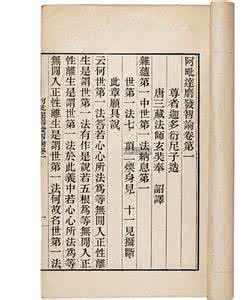 阿毗達磨發智論卷第一
尊者迦多衍尼子造
唐三藏法師玄奘奉 詔譯
雜蘊第一中世第一法納息第一
世第一法七 頂二煖身見 十一見攝斷
此章願具說
云何世第一法答若心心所法為等無間入正性離
生是謂世第一法有作是說若五根為等無間入正
性離生是謂世第一法於此義中若心心所法為等
無間入正性離生是謂世第一法何故名世第一法